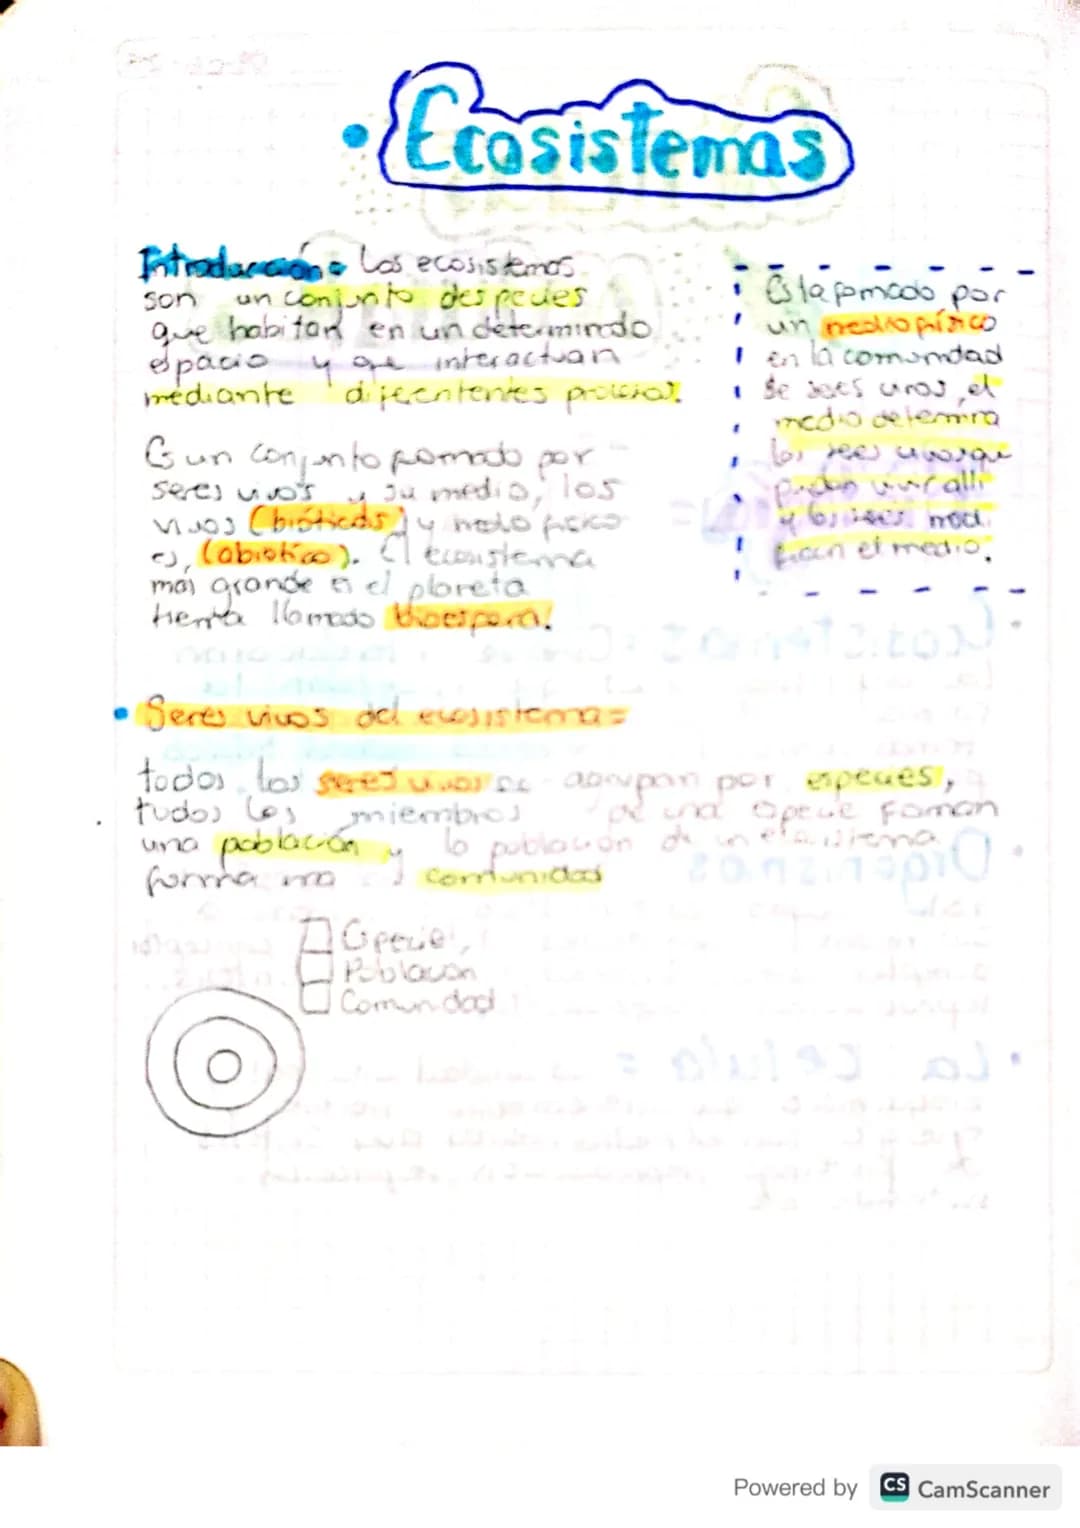 Ecosistemas
Introducción= Los ecosistemas
son un conjunto despecies
que habitan en un determinado
espacio y que interactuan
mediante
Es un conjunto formado por
seres vivos y su medio, los
vivos (bióticos) y medio fisico
es, (abiotico). El ecosistema
mas grande es el planeta
tierra llamado bioesfera!
Esta formado por
un medio físico
en la comunidad
de seres vivos, el
medio determina
los seres vivos que
puden vivir alli
y los seres modi
fican el medio.
Seres vivos del ecosistema=
todos los seres vivos se agrupan por especies,
todos los miembros de una especie forman
una población y la poblacion de un ecosistema
forma una comunidad
Especie,
Poblacion
Comunidad
Powered by CS CamScanner